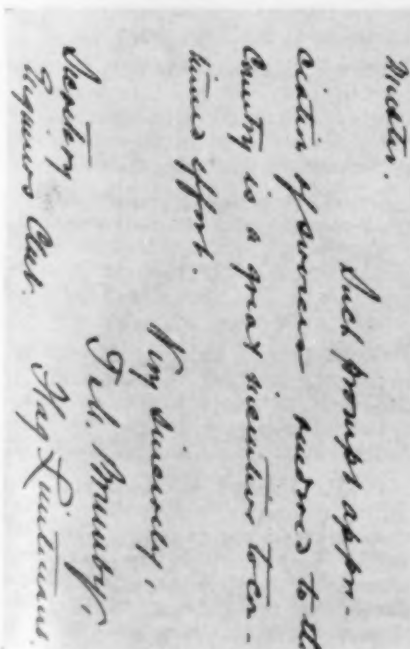 Such prompt appre-
ciation of services rendered to the
Country is a great incentive to con-
tinued effort.
Very sincerely,
T. M. Brumby,
Flag Lieutenant.
Secretary
Engineers Club.